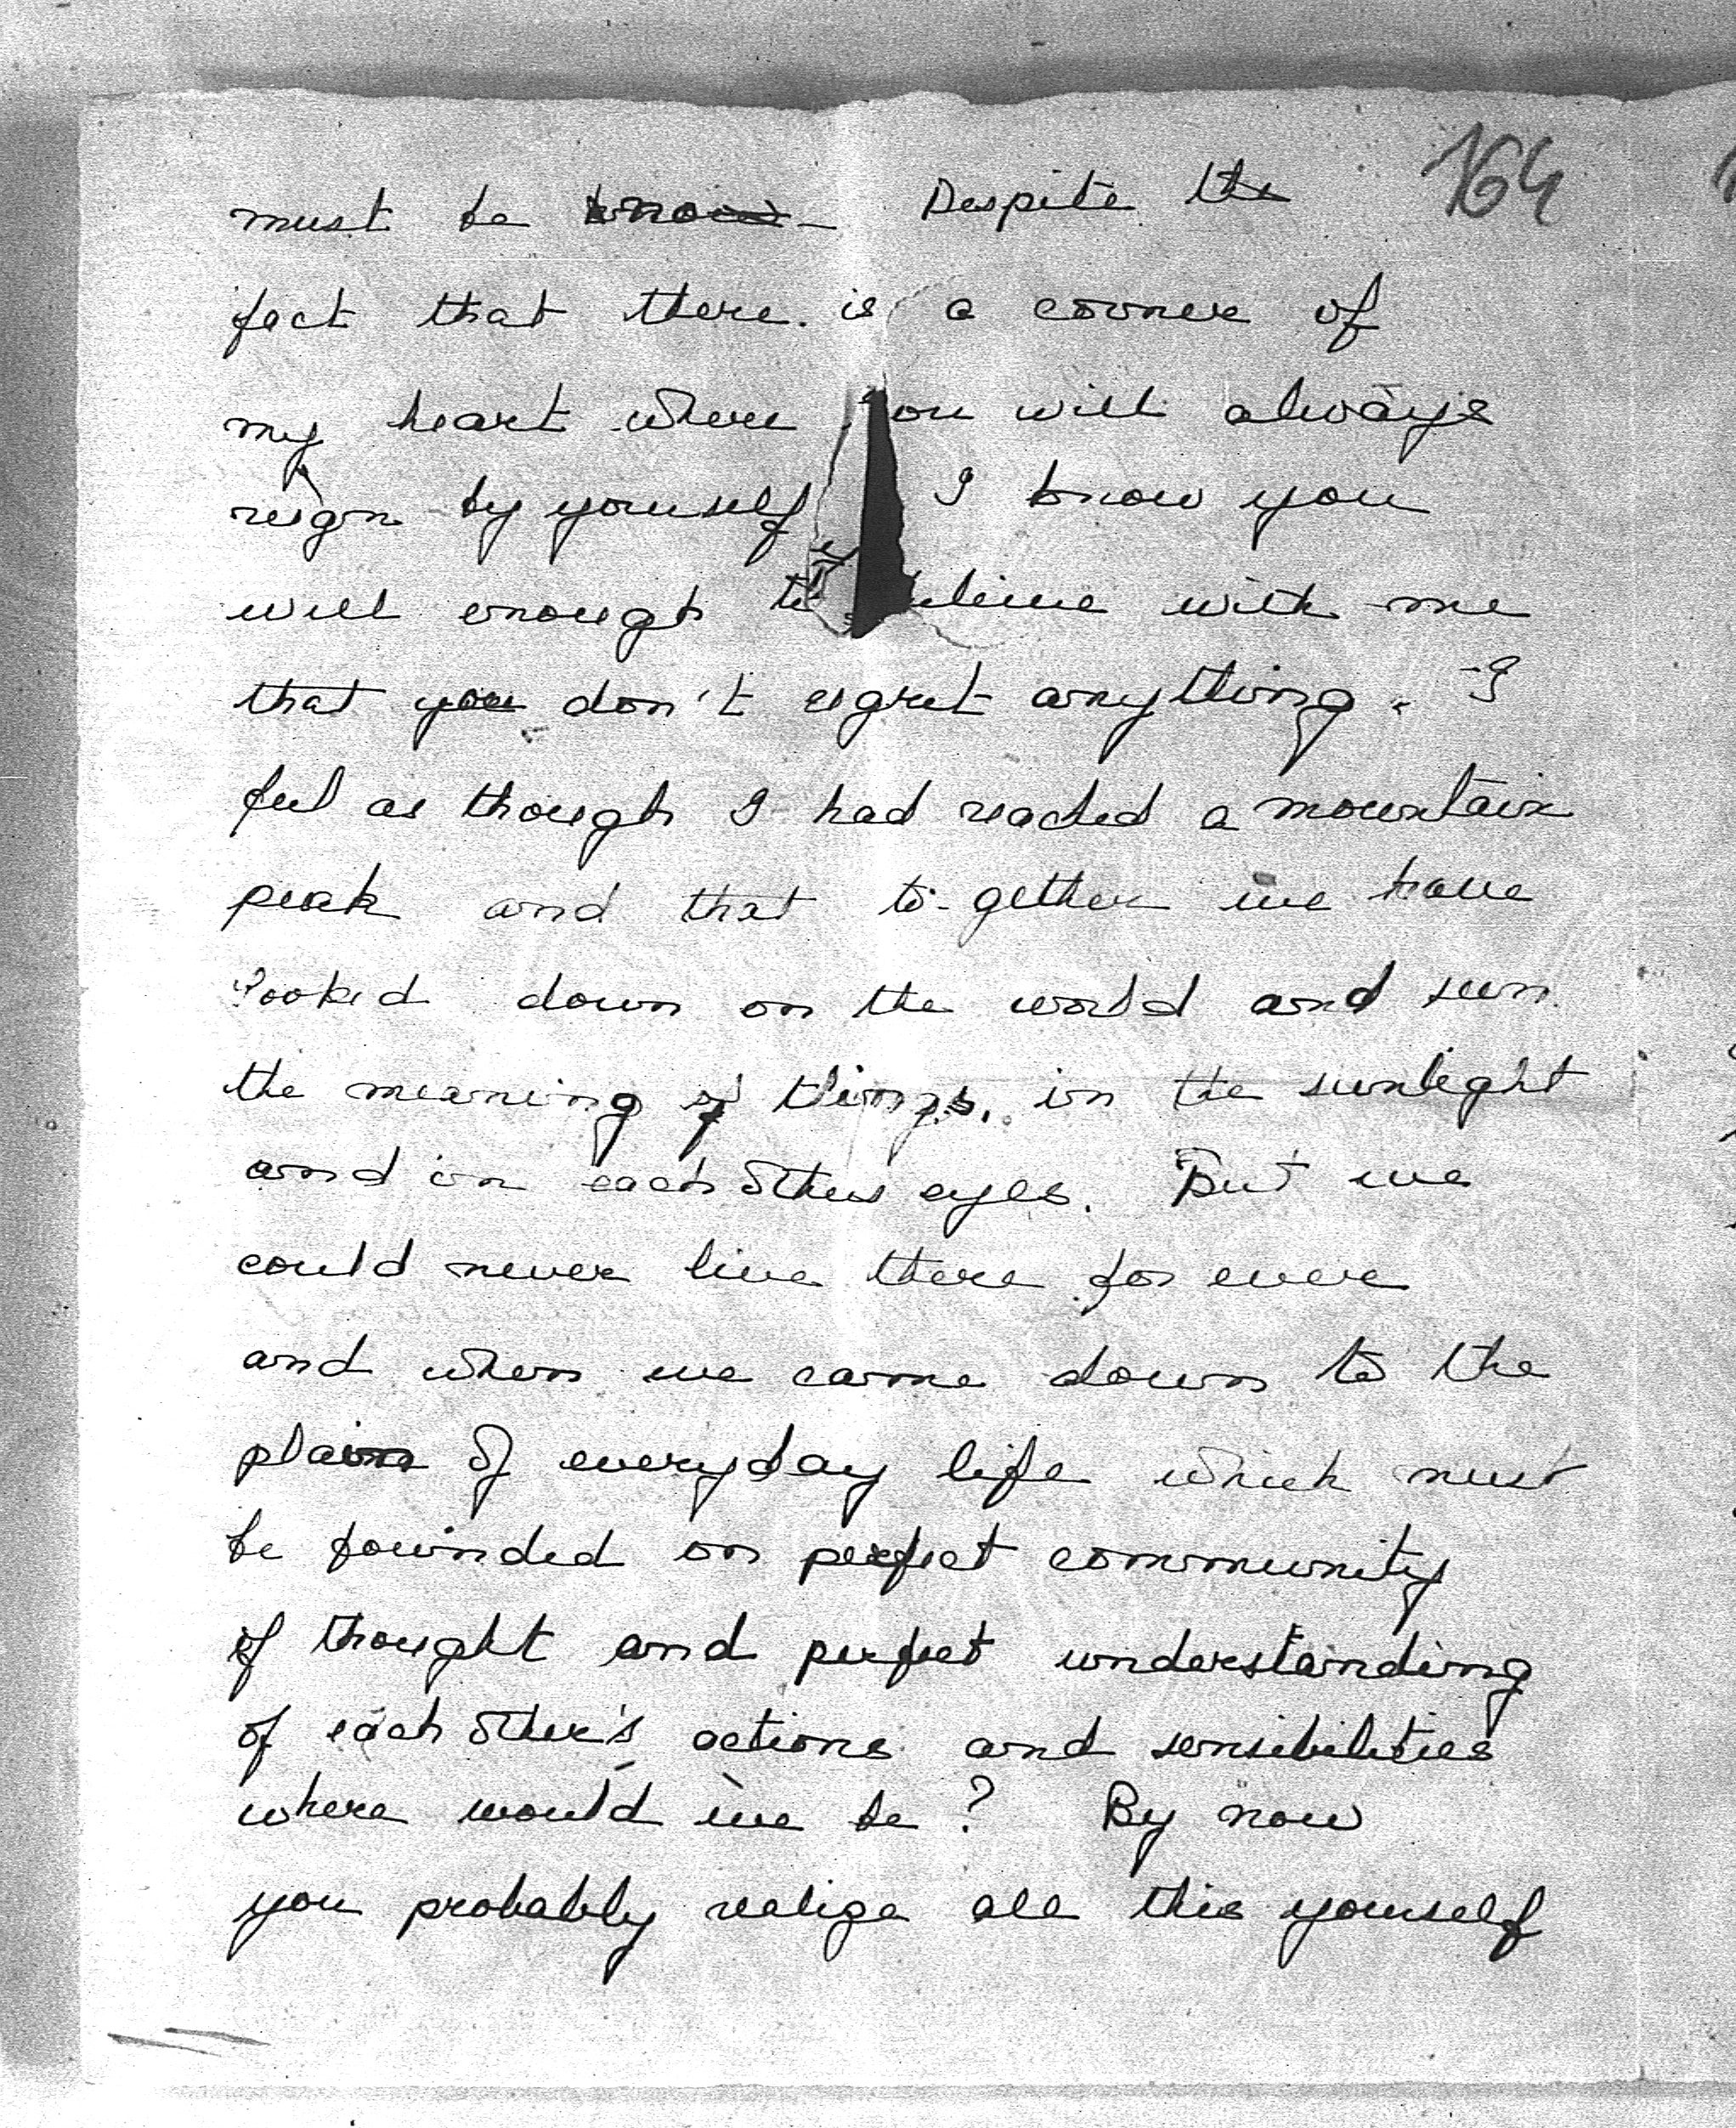 164
must be know - Despite the
fact that there is a corner of
my heart where you will always
reign by yourself I know you
well enough to believe with me
that you don't regret anything. - I
feel as though I had reached a mountain
peak and that to-gether we have
looked down on the world and seen
the meaning of things, in the sunlight
and in each others eyes. But we
could never live there for ever
and when we came down to the
plain of everyday life which must
be founded on perfect community
of thought and perfect understanding
of each other's actions and sensibilities
where would we be? By now
you probably realize all this yourself